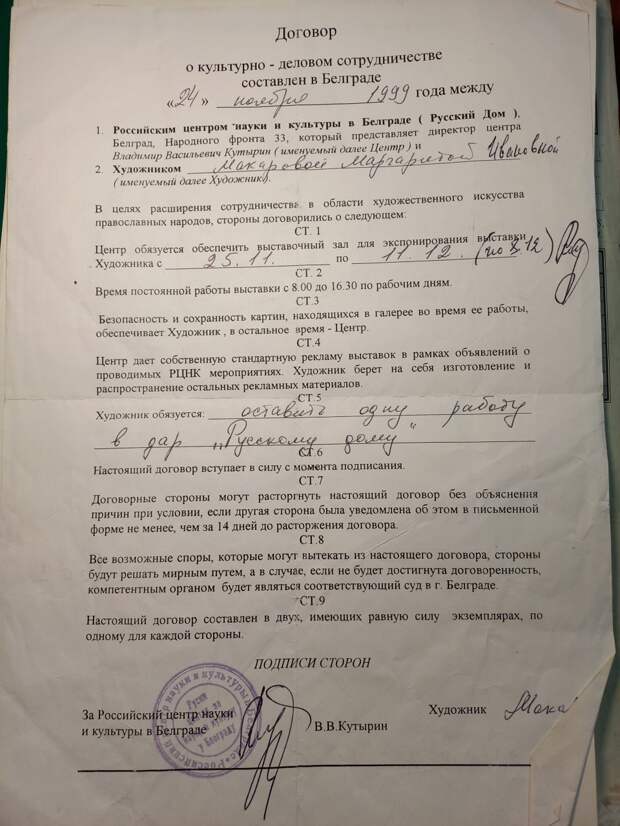 Договор
о культурно - деловом сотрудничестве
составлен в Белграде
«24» ноября 1999 года между
1. Российским центром науки и культуры в Белграде ( Русский Дом ),
Белград, Народного фронта 33, который представляет директор центра
Владимир Васильевич Кутырин ( именуемый далее Центр ) и
2. Художником Макаровой Маргаритой Ивановной
( именуемый далее Художник).
В целях расширения сотрудничества в области художественного искусства
православных народов, стороны договорились о следующем:
СТ. 1
Центр обязуется обеспечить выставочный зал для экспонирования выставки
Художника с 25.11. по 11.12. (по 12)
СТ. 2
Время постоянной работы выставки с 8.00 до 16.30 по рабочим дням.
СТ.3
Безопасность и сохранность картин, находящихся в галерее во время ее работы,
обеспечивает Художник , в остальное время - Центр.
СТ.4
Центр дает собственную стандартную рекламу выставок в рамках объявлений о
проводимых РЦНК мероприятиях. Художник берет на себя изготовление и
распространение остальных рекламных материалов.
СТ.5
Художник обязуется: оставить одну работу
в дар „Русскому дому“
СТ.6
Настоящий договор вступает в силу с момента подписания.
СТ.7
Договорные стороны могут расторгнуть настоящий договор без объяснения
причин при условии, если другая сторона была уведомлена об этом в письменной
форме не менее, чем за 14 дней до расторжения договора.
СТ.8
Все возможные споры, которые могут вытекать из настоящего договора, стороны
будут решать мирным путем, а в случае, если не будет достигнута договоренность,
компетентным органом будет являться соответствующий суд в г. Белграде.
СТ.9
Настоящий договор составлен в двух, имеющих равную силу экземплярах, по
одному для каждой стороны.
ПОДПИСИ СТОРОН
За Российский центр науки
и культуры в Белграде
В.В.Кутырин
Художник Мака